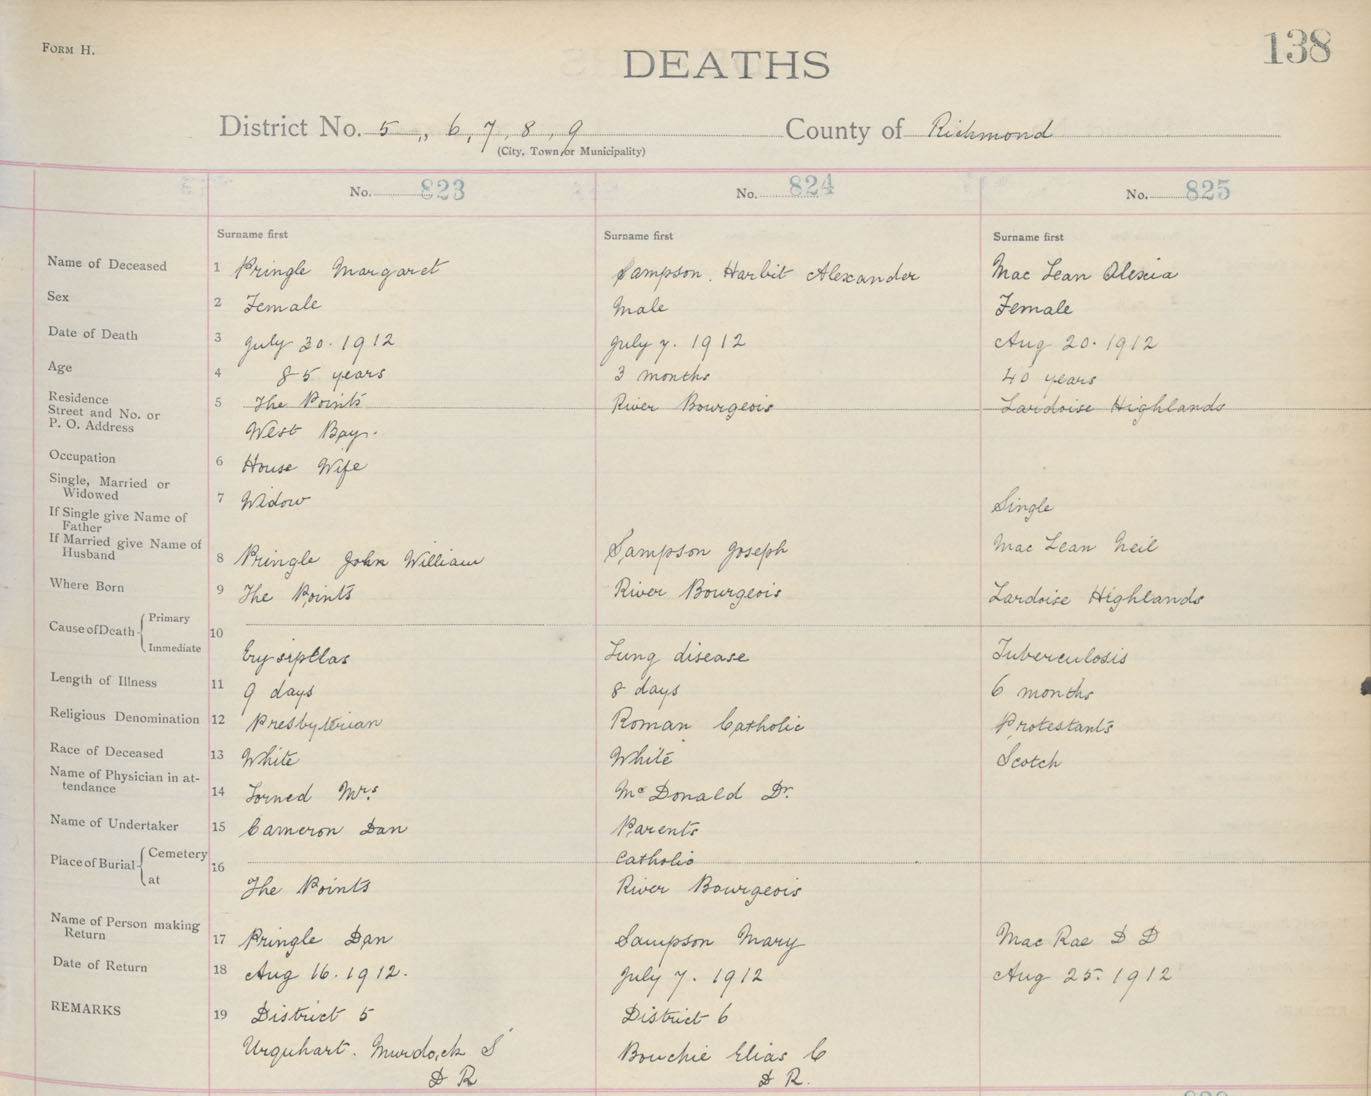 FORM H.
138
DEATHS
District No. 5 ,, 6, 7, 8, 9 County of Richmond
(City, Town, or Municipality)
No. 823 No. 824 No. 825
Surname first Surname first Surname first
Name of Deceased 1 Pringle Margaret Sampson. Harbit Alexander Mac Lean Alexia
Sex 2 Female Male Female
Date of Death 3 July 30. 1912 July 7. 1912 Aug 20. 1912
Age 4 85 years 3 months 40 years
Residence
Street and No. or 5 The Points River Bourgeois Lardoise Highlands
P. O. Address West Bay.
Occupation 6 House Wife
Single, Married or
Widowed 7 Widow Single
If Single give Name of
Father
If Married give Name of
Husband 8 Pringle John William Sampson Joseph Mac Lean Neil
Where Born 9 The Points River Bourgeois Lardoise Highlands
Cause of Death Primary 10
Immediate Erysiptlas Lung disease Tuberculosis
Length of Illness 11 9 days 8 days 6 months
Religious Denomination 12 Presbyterian Roman Catholic Protestants
Race of Deceased 13 White White Scotch
Name of Physician in at-
tendance 14 Mrs. McDonald Dr.
Name of Undertaker 15 Cameron Dan Parents
Place of Burial Cemetery 16 Catholic
at The Points River Bourgeois
Name of Person making
Return 17 Pringle Dan Sampson Mary Mac Rae D D
Date of Return 18 Aug 16. 1912. July 7. 1912 Aug 25. 1912
REMARKS 19 District 5 District 6
Urquhart. Murdock S Bouchie Elias C
D R D R.